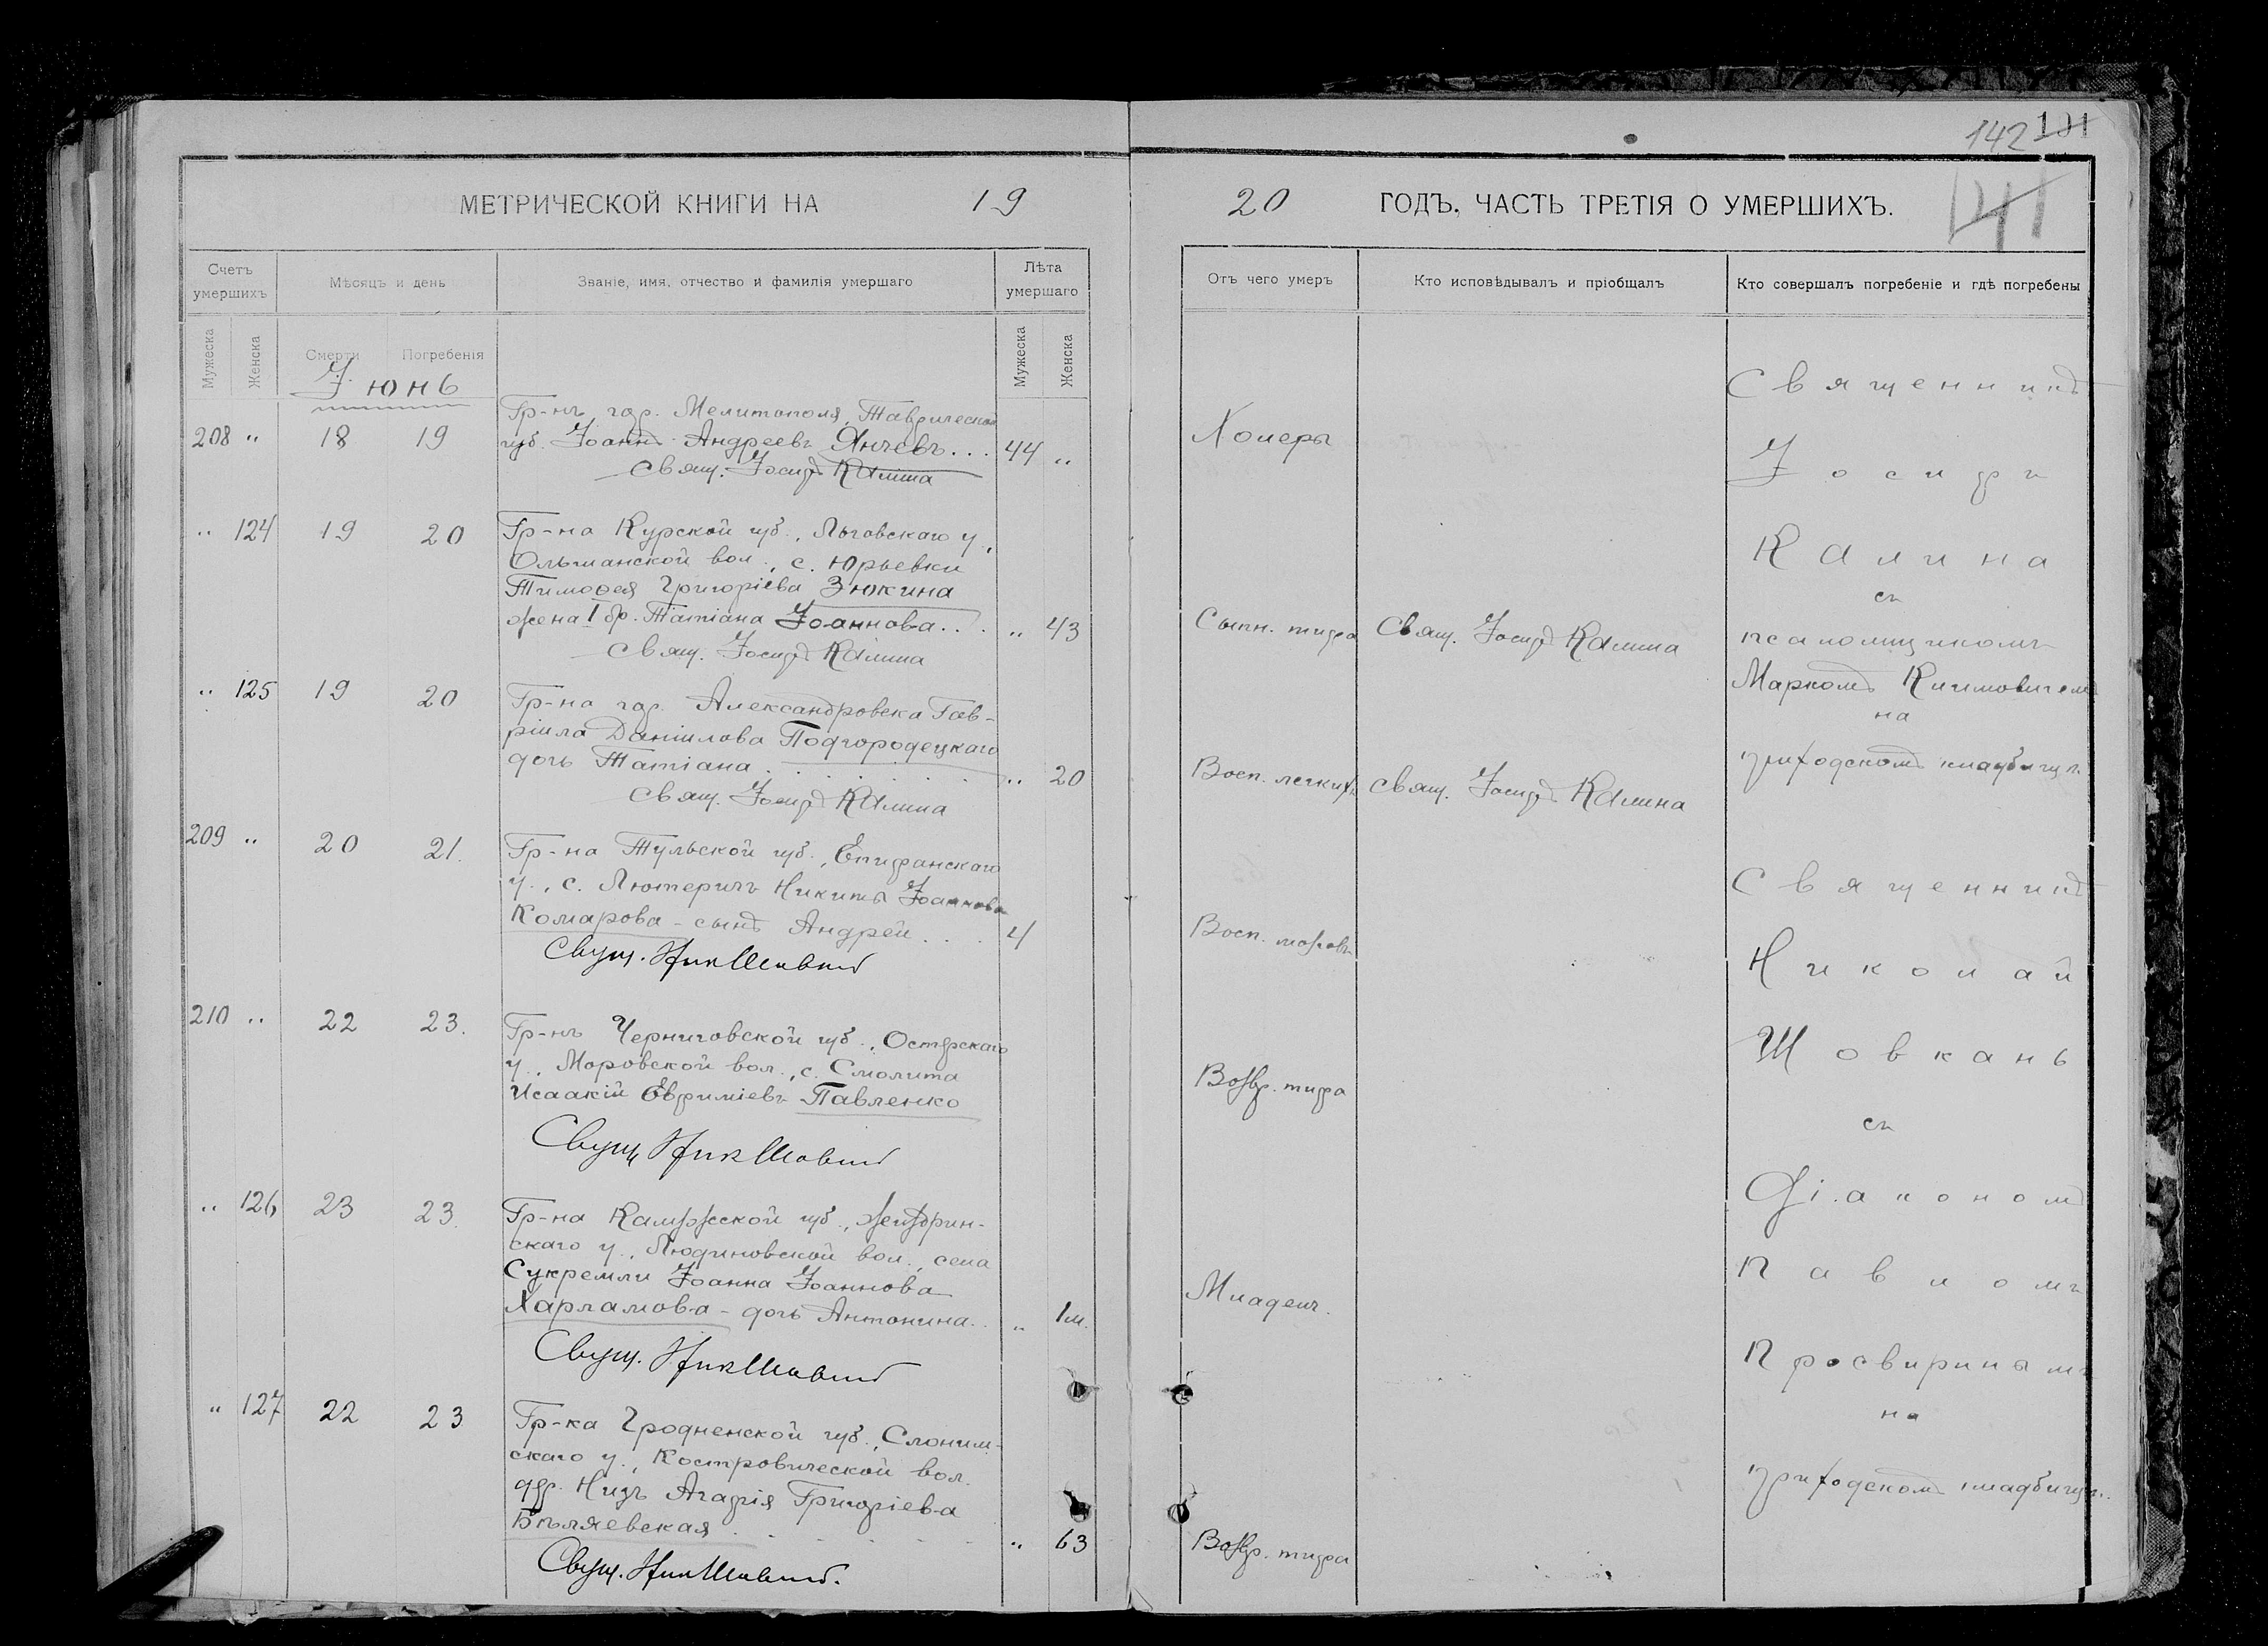 142 101
141
МЕТРИЧЕСКОЙ КНИГИ НА 19
Счетъ умершихъ
Мѣсяцъ и день
Званіе, имя, отчество и фамилія умершаго
Лѣта умершаго
Мужеска
Женска
Смерти
Погребенія
Мужеска
Женска
Іюнь
208 " 18 19
Гр-нъ гор. Мелитополя, Таврической
губ. Іоаннъ Андреевъ Янчевъ... 44 "
Свящ. Іосифъ Калина
" 124 19 20
Гр-на Курской губ., Льговскаго у.,
Ольшанской вол., с. Юрьевки
Тимоѳея Григоріева Зюкина
жена I бр. Татіана Іоаннова... " 43
Свящ. Іосифъ Калина
" 125 19 20
Гр-на гор. Александровска Гав-
ріила Даніилова Подгородецкаго
дочь Татіана " 20
Свящ. Іосифъ Калина
209 " 20 21.
Гр-на Тульской губ., Епифанскаго
у., с. Лютеричъ Никиты Іоаннова
Комарова - сынъ Андрей... 4
Свящ. Ник Шовкань
210 " 22 23.
Гр-нъ Черниговской губ., Остерскаго
у., Моровской вол., с. Смолина
Исаакій Евфиміевъ Павленко
Свящ Ник Шовкань
" 126 23 23.
Гр-на Калужской губ., Жиздрин-
скаго у., Людиновской вол., села
Сукремли Іоанна Іоаннова
Харламова - дочь Антонина.. " 1м.
Свящ. Ник Шовкань
" 127 22 23
Гр-ка Гродненской губ., Слоним-
скаго у., Костровической вол.
дер. Низъ Агафія Григоріева
Бѣляевская " 63
Свящ. Ник Шовкань.
20 ГОДЪ, ЧАСТЬ ТРЕТІЯ О УМЕРШИХЪ.
Отъ чего умеръ
Кто исповѣдывалъ и пріобщалъ
Кто совершалъ погребеніе и гдѣ погребены
Холеры
Сыпн. тифа Свящ. Іосифъ Калина
Восп. легкихъ Свящ. Іосифъ Калина
Восп. мозговъ
Возвр. тифа
Младенч.
Возвр. тифа
Священникъ
Іосифъ
Калина
съ
псаломщикомъ
Маркомъ Климовичемъ
на
приходскомъ кладбищѣ.
Священникъ
Николай
Шовкань
съ
Діакономъ
Павломъ
Просвиринымъ
на
приходскомъ кладбищѣ.